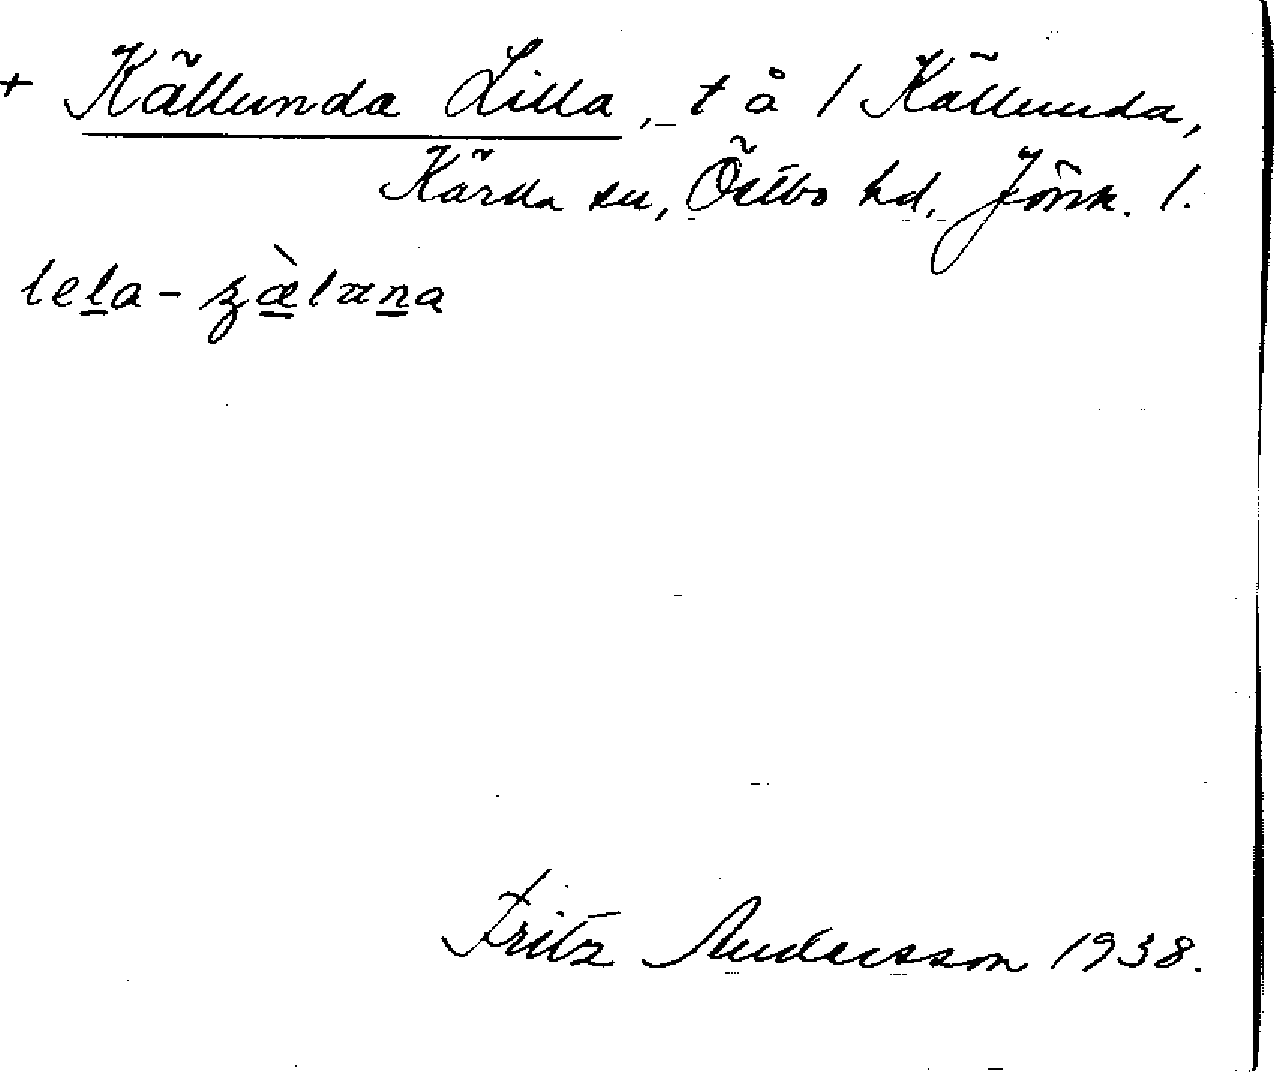 + Källunda Lilla, t å 1 Källunda,
Kärda sn, Östbo hd. Jönk. l.
lela-zæ̀lana
Fritz Andersson 1938.